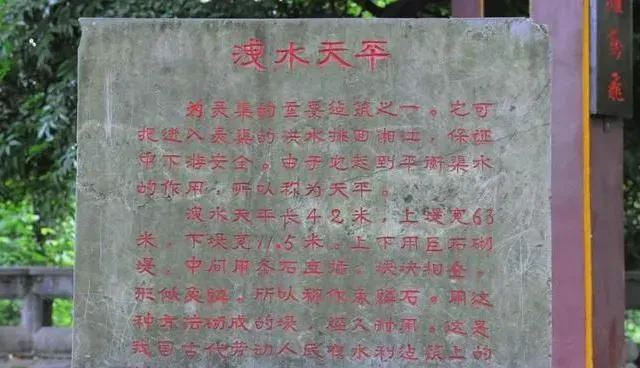 洩水天平
为灵渠的重要建筑之一。它可
把进入灵渠的洪水排回湘江，保证
中下游安全。由于它起到平衡渠水
的作用，所以称为天平。
洩水天平长42米，上堤宽63
米，下堤宽11.5米。上下用巨石砌
堤，中间用条石直插，块块相叠，
形似鱼鳞。所以称作鱼鳞石。用这
种方法砌成的堤，经久耐用。这是
我国古代劳动人民在水利建筑上的
飛